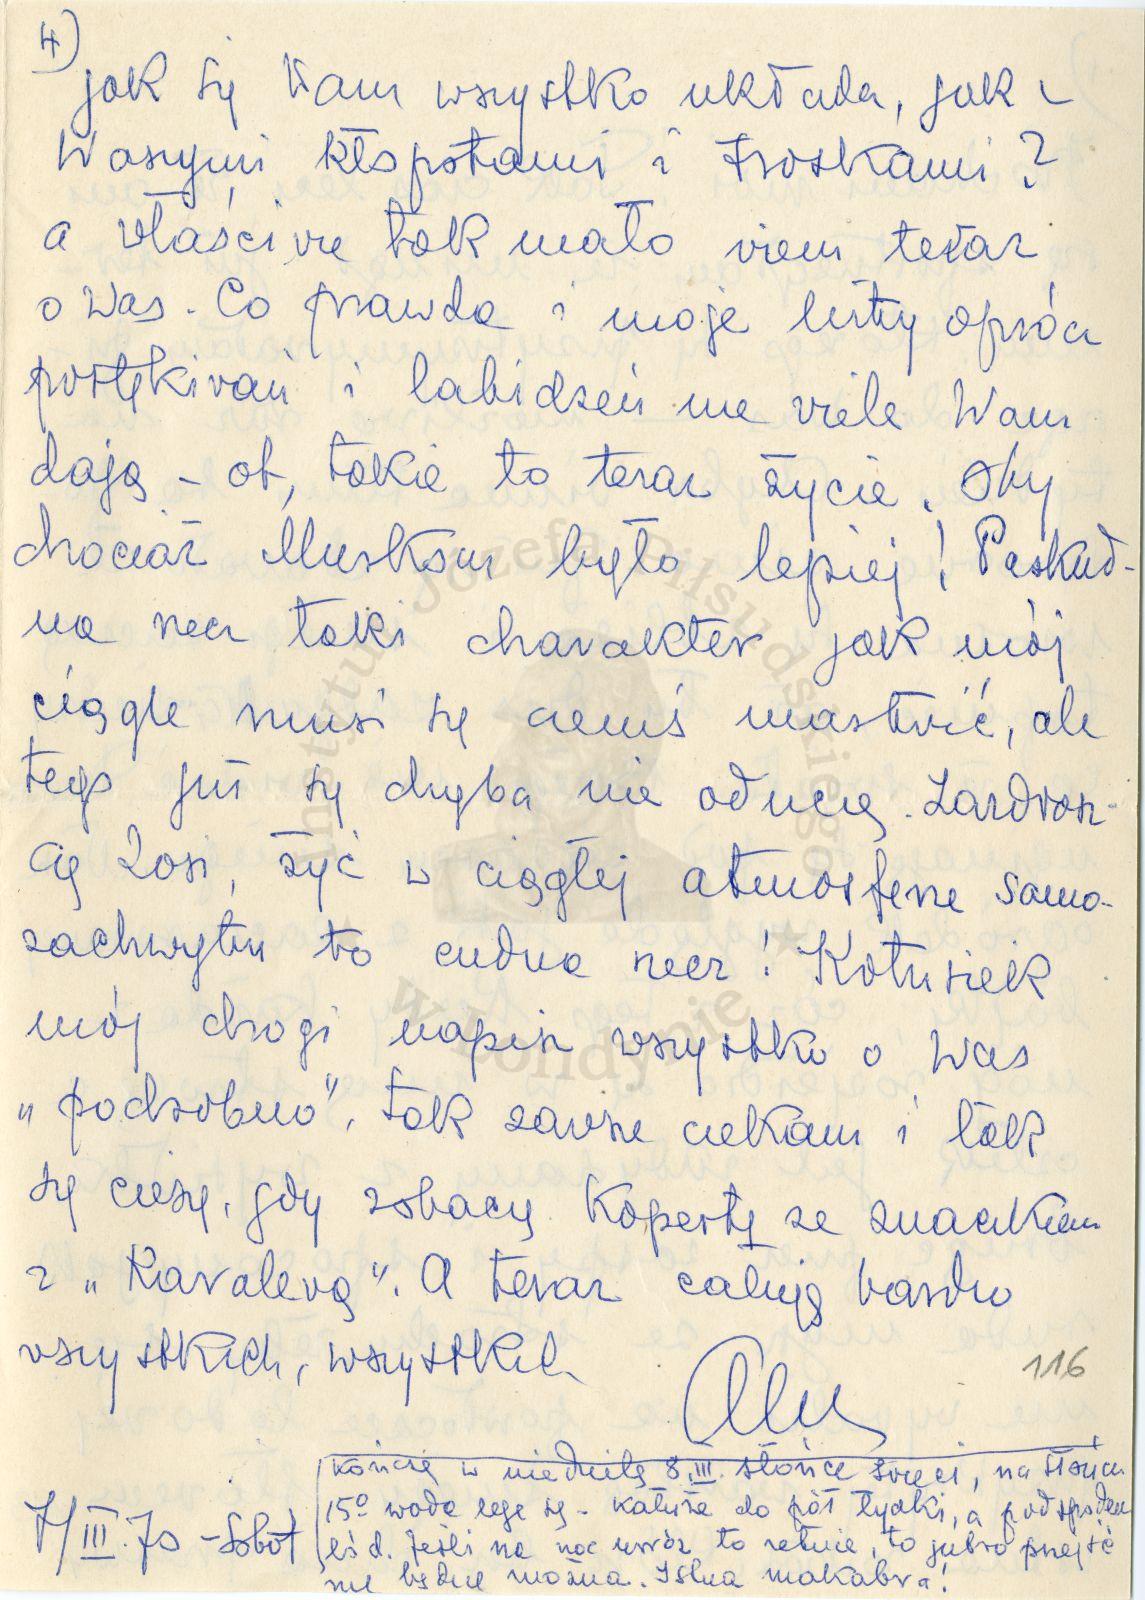 4)
jak się Wam wszystko układa, jak z
Waszymi kłopotami i troskami?
a właściwie tak mało wiem teraz
o Was. Co prawda i moje listy oprócz
postękiwań i labidzeń nie wiele Wam
dają – ot, takie to teraz życie. Oby
chociaż Muskom było lepiej! Paskud-
na rzecz taki charakter jak mój
ciągle musi się czemś martwić, ale
tego już się chyba nie oduczę. Zazdrosz-
czę Zosi, żyć w ciągłej atmosferze samo-
zachwytu to cudna rzecz! Kotusiek
mój drogi napisz wszystko o Was
„podrobno". tak zawsze czekam i tak
się cieszę, gdy zobaczę kopertę ze znaczkiem
z „Kavalevą". A teraz całuję bardzo
wszystkich, wszystkich
116
7/III.70 – Sobot
Kończę w niedzielę 8.III. słońce świeci, na słońcu
15° woda leje się – kałuże do pół łydki, a pod spodem
lód. Jeśli na noc mróz to zetnie, to jutro przejść
nie będzie można. Istna makabra!
Instytut Józefa Piłsudskiego
w Londynie